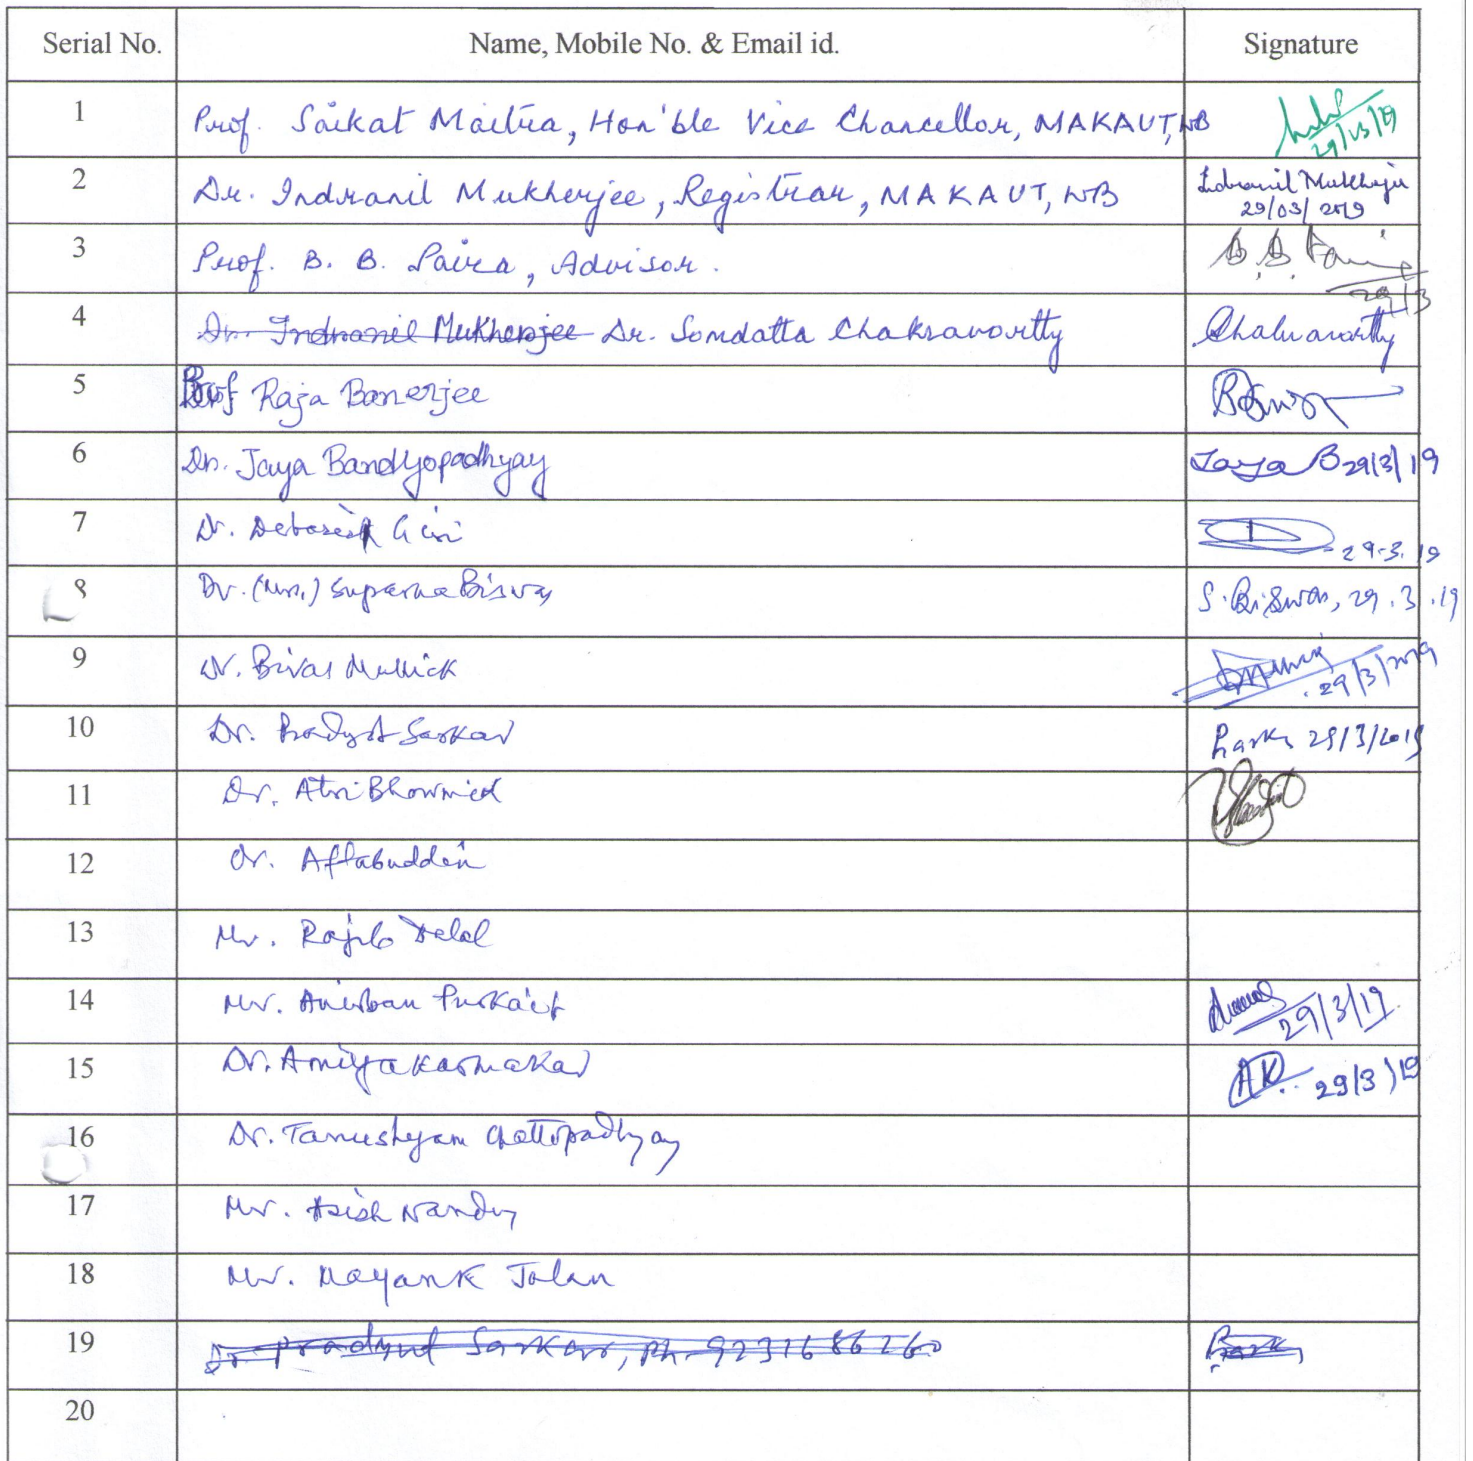 Serial No. Name, Mobile No. & Email id. Signature
1 Prof. Saikat Maitra, Hon'ble Vice Chancellor, MAKAUT, WB 29/03/19
2 Dr. Indranil Mukherjee, Registrar, MAKAUT, WB Indranil Mukherjee
29/03/2019
3 Prof. B. B. Paira, Advisor. B. B. Paira
29/3
4 Dr. Indranil Mukherjee Dr. Somdatta Chakravortty Chakravortty
5 Prof Raja Banerjee
6 Dr. Jaya Bandyopadhyay Jaya B 29/3/19
7 Dr. Debasish Giri 29-3.19
8 Dr. (Mrs.) Suparna Biswas S. Biswas, 29.3.19
9 Dr. Bivas Mullick 29/3/2019
10 Dr. Pradyut Sarkar 29/3/2019
11 Dr. Atri Bhowmick
12 Dr. Aftabuddin
13 Mr. Rajib Dalal
14 Mr. Anirban Purkait 29/3/19
15 Dr. Amiya Karmakar AK 29/3/19
16 Dr. Tanushyam Chattopadhyay
17 Mr. Asish Nandy
18 Mr. Mayank Jalan
19 Dr. Pradyut Sarkar, Ph-9231686260
20